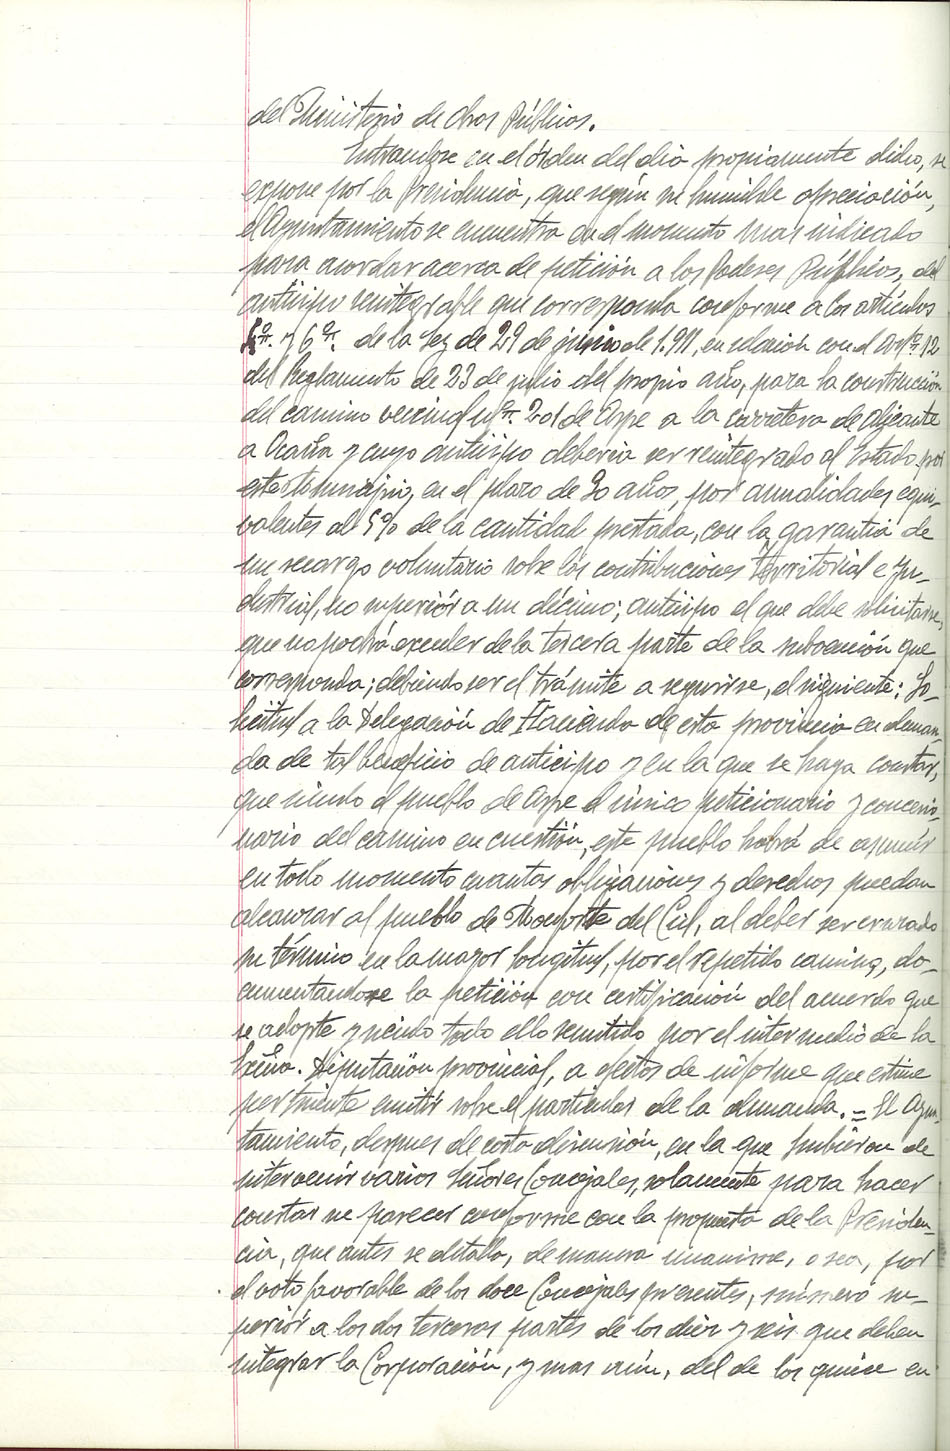 del Ministerio de Obras Públicas.
Entrandose en el órden del dia propiamente dicho, se
expone por la Presidencia, que según su humilde apreciación,
el Ayuntamiento se encuentra en el momento mas indicado
para acordar acerca de petición a los Poderes Públicos, del
anticipo reintegrable que corresponda conforme a los artículos
y 6º. de la Ley de 29 de junio de 1.911, en relación con el artº. 12
del Reglamento de 23 de julio del propio año, para la construcción
del camino vecinal nº. 201 de Aspe a la carretera de Alicante
a Ocaña y cuyo anticipo debería ser reintegrado al Estado, por
este Municipio, en el plazo de 20 años, por anualidades equi-
valentes al 5% de la cantidad prestada, con la garantía de
un recargo voluntario sobre las contribuciones Territorial e In-
dustrial, no superiór a un décimo; anticipo el que debe solicitarse,
que no podrá exceder de la tercera parte de la subvención que
corresponda; debiendo ser el trámite a seguirse, el siguiente: So-
licitud a la Delegación de Hacienda de esta provincia en deman-
da de tal beneficio de anticipo y en la que se haga constar,
que siendo el pueblo de Aspe el único peticionario y concesio-
nario del camino en cuestión, este pueblo habrá de asumir
en todo momento cuantas obligaciones y derechos puedan
alcanzar al pueblo de Monforte del Cid, al deber ser cruzado
su término en la mayor longitud, por el repetido camino, do-
cumentandose la petición con certificación del acuerdo que
se adopte y siendo todo ello remitido por el intermedio de la
Excma. Diputación provincial, a efectos de informe que estime
pertinente emitir sobre el particular de la demanda. = El Ayun-
tamiento, despues de corta discusión, en la que hubieron de
intervenir varios Señores Concejales, solamente para hacer
constar su parecer conforme con la propuesta de la Presiden-
cia, que antes se detalla, de manera unanime, o sea, por
el voto favorable de los doce Concejales presentes, número su-
periór a los dos terceras partes de los diez y seis que deben
integrar la Corporación, y mas aún, del de los quince en